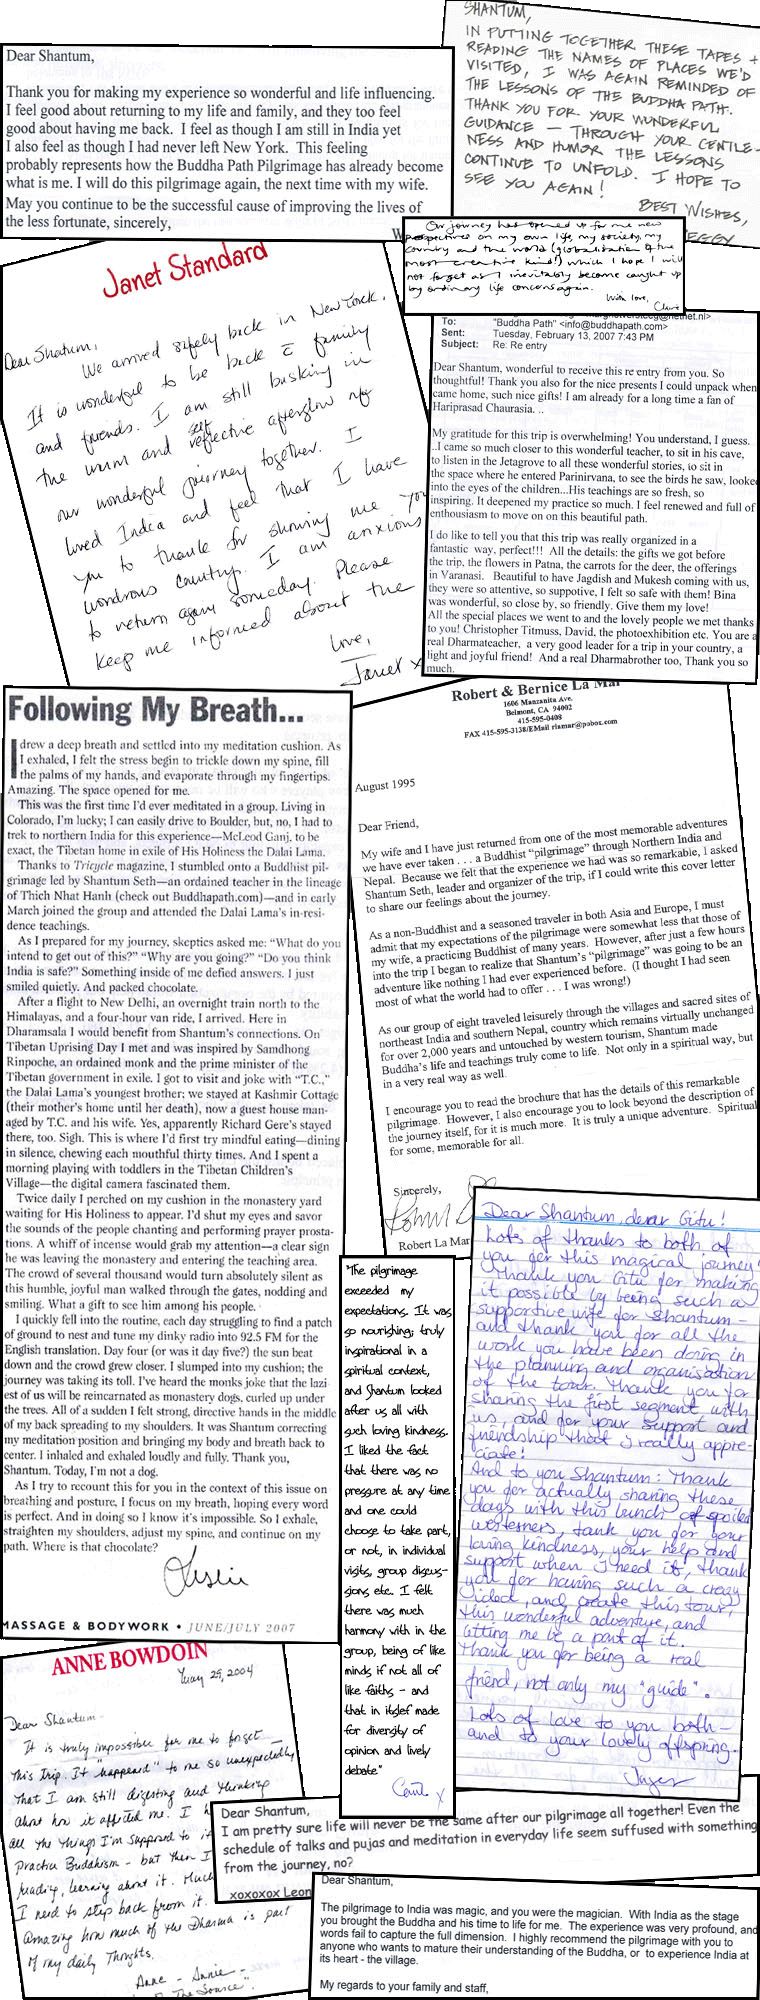 Dear Shantum,
Thank you for making my experience so wonderful and life influencing.
I feel good about returning to my life and family, and they too feel
good about having me back. I feel as though I am still in India yet
I also feel as though I had never left New York. This feeling
probably represents how the Buddha Path Pilgrimage has already become
what is me. I will do this pilgrimage again, the next time with my wife.
May you continue to be the successful cause of improving the lives of
the less fortunate, sincerely,
SHANTUM,
IN PUTTING TOGETHER THESE TAPES +
READING THE NAMES OF PLACES WE'D
VISITED, I WAS AGAIN REMINDED OF
THE LESSONS OF THE BUDDHA PATH.
THANK YOU FOR YOUR WONDERFUL
GUIDANCE – THROUGH YOUR GENTLE-
NESS AND HUMOR THE LESSONS
CONTINUE TO UNFOLD. I HOPE TO
SEE YOU AGAIN!
BEST WISHES,
Our journey has opened up for me new
perspectives on my own life, my society, my
country and the world (globalization of the
most creative kind!) which I hope I will
not forget as I inevitably become caught up
by ordinary life concerns again.
With love,
Claire
Janet Standard
Dear Shantum,
We arrived safely back in New York.
It is wonderful to be back c̄ family
and friends. I am still basking in
the warm and self reflective afterglow of
our wonderful journey together. I
loved India and feel that I have
you to thank for showing me your
wondrous country. I am anxious
to return again someday. Please
keep me informed about the
Love,
Janet x
To: "Buddha Path" <info@buddhapath.com>
Sent: Tuesday, February 13, 2007 7:43 PM
Subject: Re: Re entry
Dear Shantum, wonderful to receive this re entry from you. So
thoughtful! Thank you also for the nice presents I could unpack when
came home, such nice gifts! I am already for a long time a fan of
Hariprasad Chaurasia. ..
My gratitude for this trip is overwhelming! You understand, I guess.
..I came so much closer to this wonderful teacher, to sit in his cave,
to listen in the Jetagrove to all these wonderful stories, to sit in
the space where he entered Parinirvana, to see the birds he saw, looked
into the eyes of the children...His teachings are so fresh, so
inspiring. It deepened my practice so much. I feel renewed and full of
enthousiasm to move on on this beautiful path.
I do like to tell you that this trip was really organized in a
fantastic way, perfect!!! All the details: the gifts we got before
the trip, the flowers in Patna, the carrots for the deer, the offerings
in Varanasi. Beautiful to have Jagdish and Mukesh coming with us,
they were so attentive, so suppotive, I felt so safe with them! Bina
was wonderful, so close by, so friendly. Give them my love!
All the special places we went to and the lovely people we met thanks
to you! Christopher Titmuss, David, the photoexhibition etc. You are a
real Dharmateacher, a very good leader for a trip in your country, a
light and joyful friend! And a real Dharmabrother too, Thank you so
much.
Following My Breath...
I drew a deep breath and settled into my meditation cushion. As
I exhaled, I felt the stress begin to trickle down my spine, fill
the palms of my hands, and evaporate through my fingertips.
Amazing. The space opened for me.
This was the first time I'd ever meditated in a group. Living in
Colorado, I'm lucky; I can easily drive to Boulder, but, no, I had to
trek to northern India for this experience—McLeod Ganj, to be
exact, the Tibetan home in exile of His Holiness the Dalai Lama.
Thanks to Tricycle magazine, I stumbled onto a Buddhist pil-
grimage led by Shantum Seth—an ordained teacher in the lineage
of Thich Nhat Hanh (check out Buddhapath.com)—and in early
March joined the group and attended the Dalai Lama's in-resi-
dence teachings.
As I prepared for my journey, skeptics asked me: "What do you
intend to get out of this?" "Why are you going?" "Do you think
India is safe?" Something inside of me defied answers. I just
smiled quietly. And packed chocolate.
After a flight to New Delhi, an overnight train north to the
Himalayas, and a four-hour van ride, I arrived. Here in
Dharamsala I would benefit from Shantum's connections. On
Tibetan Uprising Day I met and was inspired by Samdhong
Rinpoche, an ordained monk and the prime minister of the
Tibetan government in exile. I got to visit and joke with "T.C.,"
the Dalai Lama's youngest brother; we stayed at Kashmir Cottage
(their mother's home until her death), now a guest house man-
aged by T.C. and his wife. Yes, apparently Richard Gere's stayed
there, too. Sigh. This is where I'd first try mindful eating—dining
in silence, chewing each mouthful thirty times. And I spent a
morning playing with toddlers in the Tibetan Children's
Village—the digital camera fascinated them.
Twice daily I perched on my cushion in the monastery yard
waiting for His Holiness to appear. I'd shut my eyes and savor
the sounds of the people chanting and performing prayer prosta-
tions. A whiff of incense would grab my attention—a clear sign
he was leaving the monastery and entering the teaching area.
The crowd of several thousand would turn absolutely silent as
this humble, joyful man walked through the gates, nodding and
smiling. What a gift to see him among his people.
I quickly fell into the routine, each day struggling to find a patch
of ground to nest and tune my dinky radio into 92.5 FM for the
English translation. Day four (or was it day five?) the sun beat
down and the crowd grew closer. I slumped into my cushion; the
journey was taking its toll. I've heard the monks joke that the lazi
est of us will be reincarnated as monastery dogs, curled up under
the trees. All of a sudden I felt strong, directive hands in the middle
of my back spreading to my shoulders. It was Shantum correcting
my meditation position and bringing my body and breath back to
center. I inhaled and exhaled loudly and fully. Thank you,
Shantum. Today, I'm not a dog.
As I try to recount this for you in the context of this issue on
breathing and posture, I focus on my breath, hoping every word
is perfect. And in doing so I know it's impossible. So I exhale,
straighten my shoulders, adjust my spine, and continue on my
path. Where is that chocolate?
Leslie
MASSAGE & BODYWORK • JUNE/JULY 2007
Robert & Bernice La Mar
1606 Manzanita Ave.
Belmont, CA 94002
415-595-0408
FAX 415-595-3138/EMail rlamar@pobox.com
August 1995
Dear Friend,
My wife and I have just returned from one of the most memorable adventures
we have ever taken . . . a Buddhist "pilgrimage" through Northern India and
Nepal. Because we felt that the experience we had was so remarkable, I asked
Shantum Seth, leader and organizer of the trip, if I could write this cover letter
to share our feelings about the journey.
As a non-Buddhist and a seasoned traveler in both Asia and Europe, I must
admit that my expectations of the pilgrimage were somewhat less that those of
my wife, a practicing Buddhist of many years. However, after just a few hours
into the trip I began to realize that Shantum's "pilgrimage" was going to be an
adventure like nothing I had ever experienced before. (I thought I had seen
most of what the world had to offer . . . I was wrong!)
As our group of eight traveled leisurely through the villages and sacred sites of
northeast India and southern Nepal, country which remains virtually unchanged
for over 2,000 years and untouched by western tourism, Shantum made
Buddha's life and teachings truly come to life. Not only in a spiritual way, but
in a very real way as well.
I encourage you to read the brochure that has the details of this remarkable
pilgrimage. However, I also encourage you to look beyond the description of
the journey itself, for it is much more. It is truly a unique adventure. Spiritual
for some, memorable for all.
Sincerely,
Robert La Mar
"The pilgrimage
exceeded my
expectations. It was
so nourishing; truly
inspirational in a
spiritual context,
and Shantum looked
after us all with
such loving kindness.
I liked the fact
that there was no
pressure at any time
and one could
choose to take part,
or not, in individual
visits, group discus-
sions etc. I felt
there was much
harmony with in the
group, being of like
minds if not all of
like faiths - and
that in itslef made
for diversity of
opinion and lively
debate"
Dear Shantum, dear Gitu!
Lots of thanks to both of
you for this magical journey!
Thank you Gitu for making
it possible by being such a
supportive wife for Shantum -
and thank you for all the
work you have been doing in
the planning and organisation
of the tour. Thank you for
sharing the first segment with
us, and for your support and
friendship that I really appre-
ciate!
And to you Shantum: Thank
you for actually sharing these
days with this bunch of spoiled
westerners, tank you for your
loving kindness, your help and
support when I need it, thank
you for having such a crazy
idea, and create this tour,
this wonderful adventure, and
letting me be a part of it.
Thank you for being a real
friend, not only my "guide".
Lots of love to you both -
and to your lovely offspring.
ANNE BOWDOIN
May 25, 2004
Dear Shantum -
It is truly impossible for me to forget
This Trip. It "happened" to me so unexpectedly
That I am still digesting and thinking
about how it affected me. I
all the things I'm supposed to
practice Buddhism - but then I
reading, learning about it. Much
I need to step back from it.
Amazing how much of the Dharma is part
of my daily Thoughts.
Anne - Annie -
"The Source".
Dear Shantum,
I am pretty sure life will never be the same after our pilgrimage all together! Even the
schedule of talks and pujas and meditation in everyday life seem suffused with something
from the journey, no?
xoxoxox Leon
Dear Shantum,
The pilgrimage to India was magic, and you were the magician. With India as the stage
you brought the Buddha and his time to life for me. The experience was very profound, and
words fail to capture the full dimension. I highly recommend the pilgrimage with you to
anyone who wants to mature their understanding of the Buddha, or to experience India at
its heart - the village.
My regards to your family and staff,